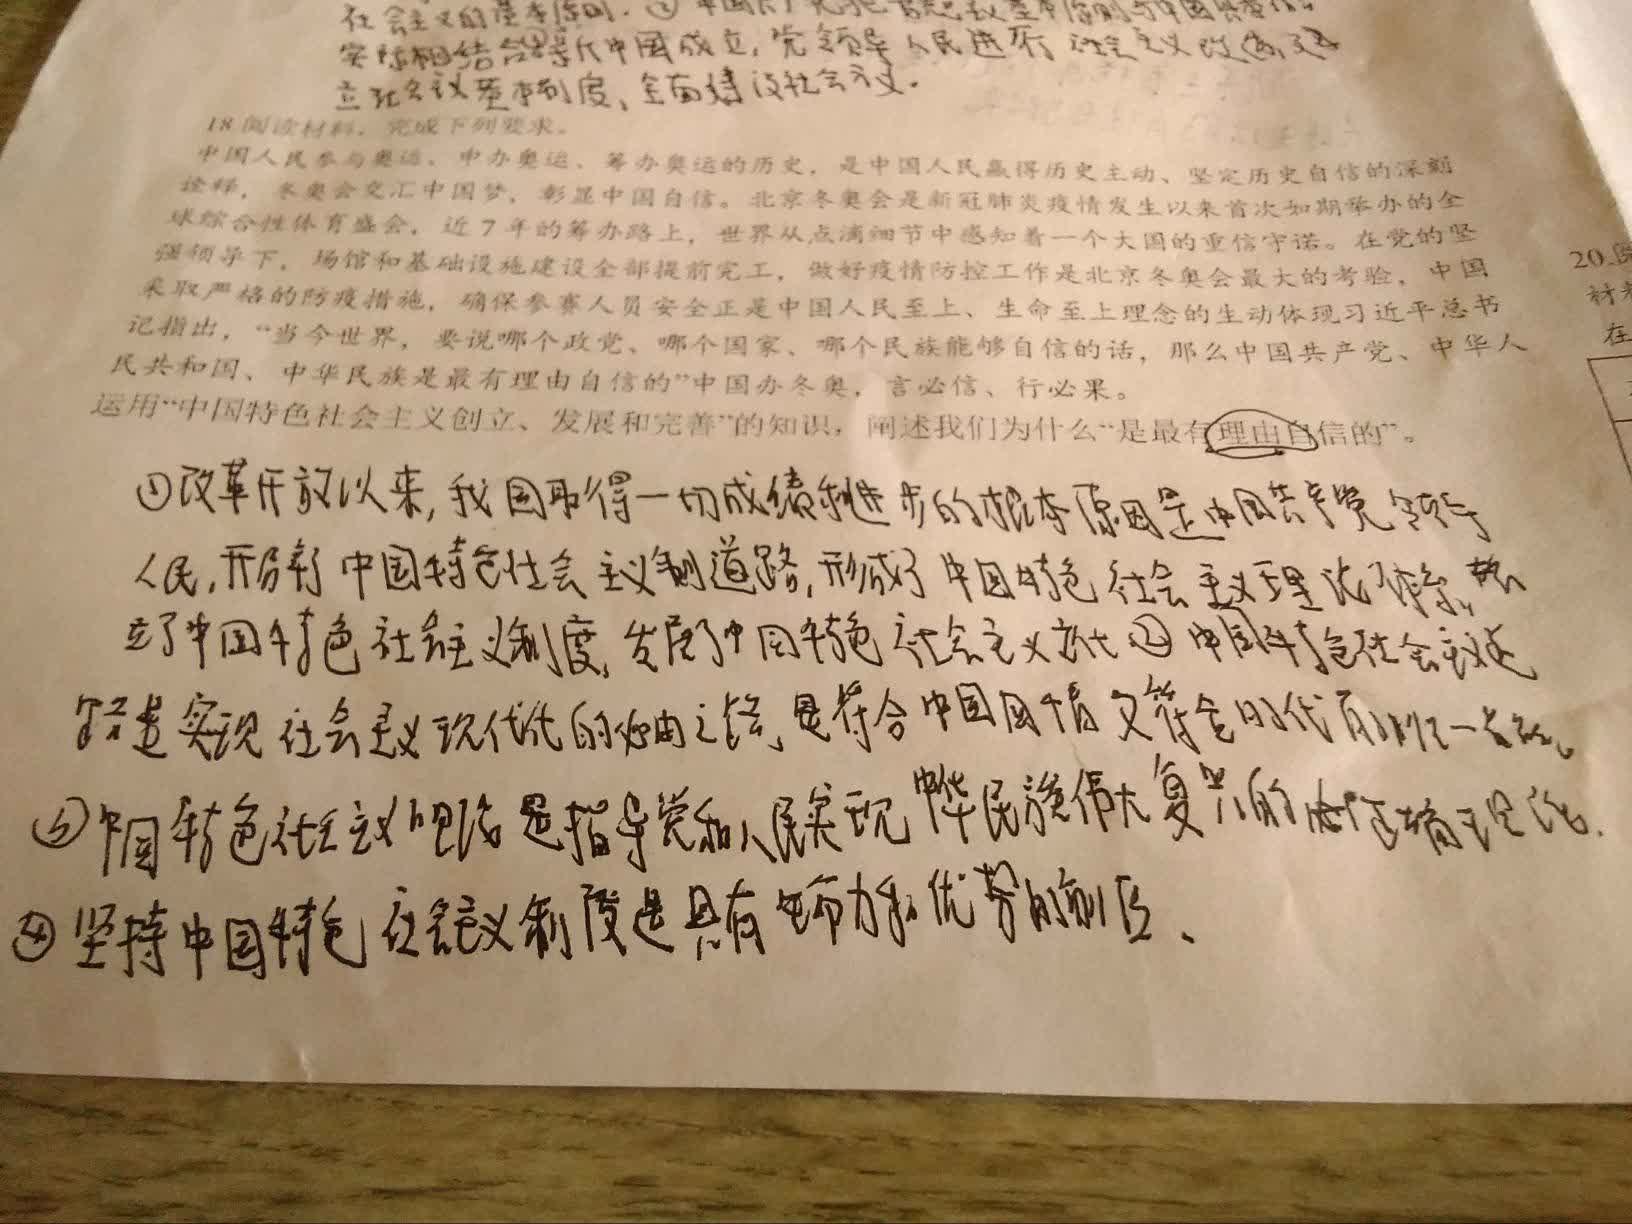 社会主义的基本原则.②中国共产党把
实际相结合 中国成立,党领导人民进行社会主义改造,建
立社会主义基本制度,全面建设社会主义.
18.阅读材料,完成下列要求。
中国人民参与奥运、申办奥运、筹办奥运的历史,是中国人民赢得历史主动、坚定历史自信的深刻
诠释,冬奥会交汇中国梦,彰显中国自信。北京冬奥会是新冠肺炎疫情发生以来首次如期举办的全
球综合性体育盛会,近7年的筹办路上,世界从点滴细节中感知着一个大国的重信守诺。在党的坚
强领导下,场馆和基础设施建设全部提前完工,做好疫情防控工作是北京冬奥会最大的考验,中国
采取严格的防疫措施,确保参赛人员安全正是中国人民至上、生命至上理念的生动体现习近平总书
记指出,“当今世界,要说哪个政党、哪个国家、哪个民族能够自信的话,那么中国共产党、中华人
民共和国、中华民族是最有理由自信的”中国办冬奥,言必信、行必果。
运用“中国特色社会主义创立、发展和完善”的知识,阐述我们为什么“是最有理由自信的”。
①改革开放以来,我国取得一切成绩和进步的根本原因是中国共产党领导
人民,开辟了中国特色社会主义道路,形成了中国特色社会主义理论体系,确
立了中国特色社会主义制度,发展了中国特色社会主义文化②中国特色社会主义道
路是实现社会主义现代化的必由之路,是符合中国国情又符合时代
③中国特色社会主义理论是指导党和人民实现中华民族伟大复兴的正确理论.
④坚持中国特色社会主义制度是具有 力和优势的制度、
20.
材料
在